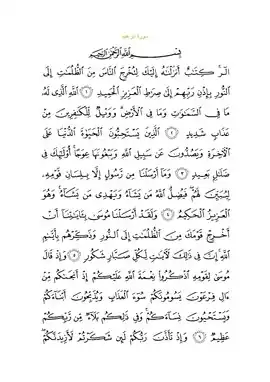 بِسْمِ اللَّهِ الرَّحْمَٰنِ الرَّحِيمِ
الٓر ۚ كِتَٰبٌ أَنزَلْنَٰهُ إِلَيْكَ لِتُخْرِجَ النَّاسَ مِنَ الظُّلُمَٰتِ إِلَى
النُّورِ بِإِذْنِ رَبِّهِمْ إِلَىٰ صِرَٰطِ الْعَزِيزِ الْحَمِيدِ ﴿١﴾ اللَّهِ الَّذِي لَهُ
مَا فِي السَّمَٰوَٰتِ وَمَا فِي الْأَرْضِ وَوَيْلٌ لِّلْكَٰفِرِينَ مِنْ
عَذَابٍ شَدِيدٍ ﴿٢﴾ الَّذِينَ يَسْتَحِبُّونَ الْحَيَوٰةَ الدُّنْيَا عَلَى
الْآخِرَةِ وَيَصُدُّونَ عَن سَبِيلِ اللَّهِ وَيَبْغُونَهَا عِوَجًا أُولَٰئِكَ فِي
ضَلَٰلٍ بَعِيدٍ ﴿٣﴾ وَمَا أَرْسَلْنَا مِن رَّسُولٍ إِلَّا بِلِسَانِ قَوْمِهِ
لِيُبَيِّنَ لَهُمْ فَيُضِلُّ اللَّهُ مَن يَشَاءُ وَيَهْدِي مَن يَشَاءُ وَهُوَ
الْعَزِيزُ الْحَكِيمُ ﴿٤﴾ وَلَقَدْ أَرْسَلْنَا مُوسَىٰ بِـَٔايَٰتِنَا أَنْ
أَخْرِجْ قَوْمَكَ مِنَ الظُّلُمَٰتِ إِلَى النُّورِ وَذَكِّرْهُم بِأَيَّىٰمِ
اللَّهِ إِنَّ فِي ذَٰلِكَ لَآيَٰتٍ لِّكُلِّ صَبَّارٍ شَكُورٍ ﴿٥﴾ وَإِذْ قَالَ
مُوسَىٰ لِقَوْمِهِ اذْكُرُوا نِعْمَةَ اللَّهِ عَلَيْكُمْ إِذْ أَنجَىٰكُم مِّنْ
ءَالِ فِرْعَوْنَ يَسُومُونَكُمْ سُوءَ الْعَذَابِ وَيُذَبِّحُونَ أَبْنَاءَكُمْ
وَيَسْتَحْيُونَ نِسَاءَكُمْ وَفِي ذَٰلِكُم بَلَاءٌ مِّن رَّبِّكُمْ
عَظِيمٌ ﴿٦﴾ وَإِذْ تَأَذَّنَ رَبُّكُمْ لَئِن شَكَرْتُمْ لَأَزِيدَنَّكُمْ